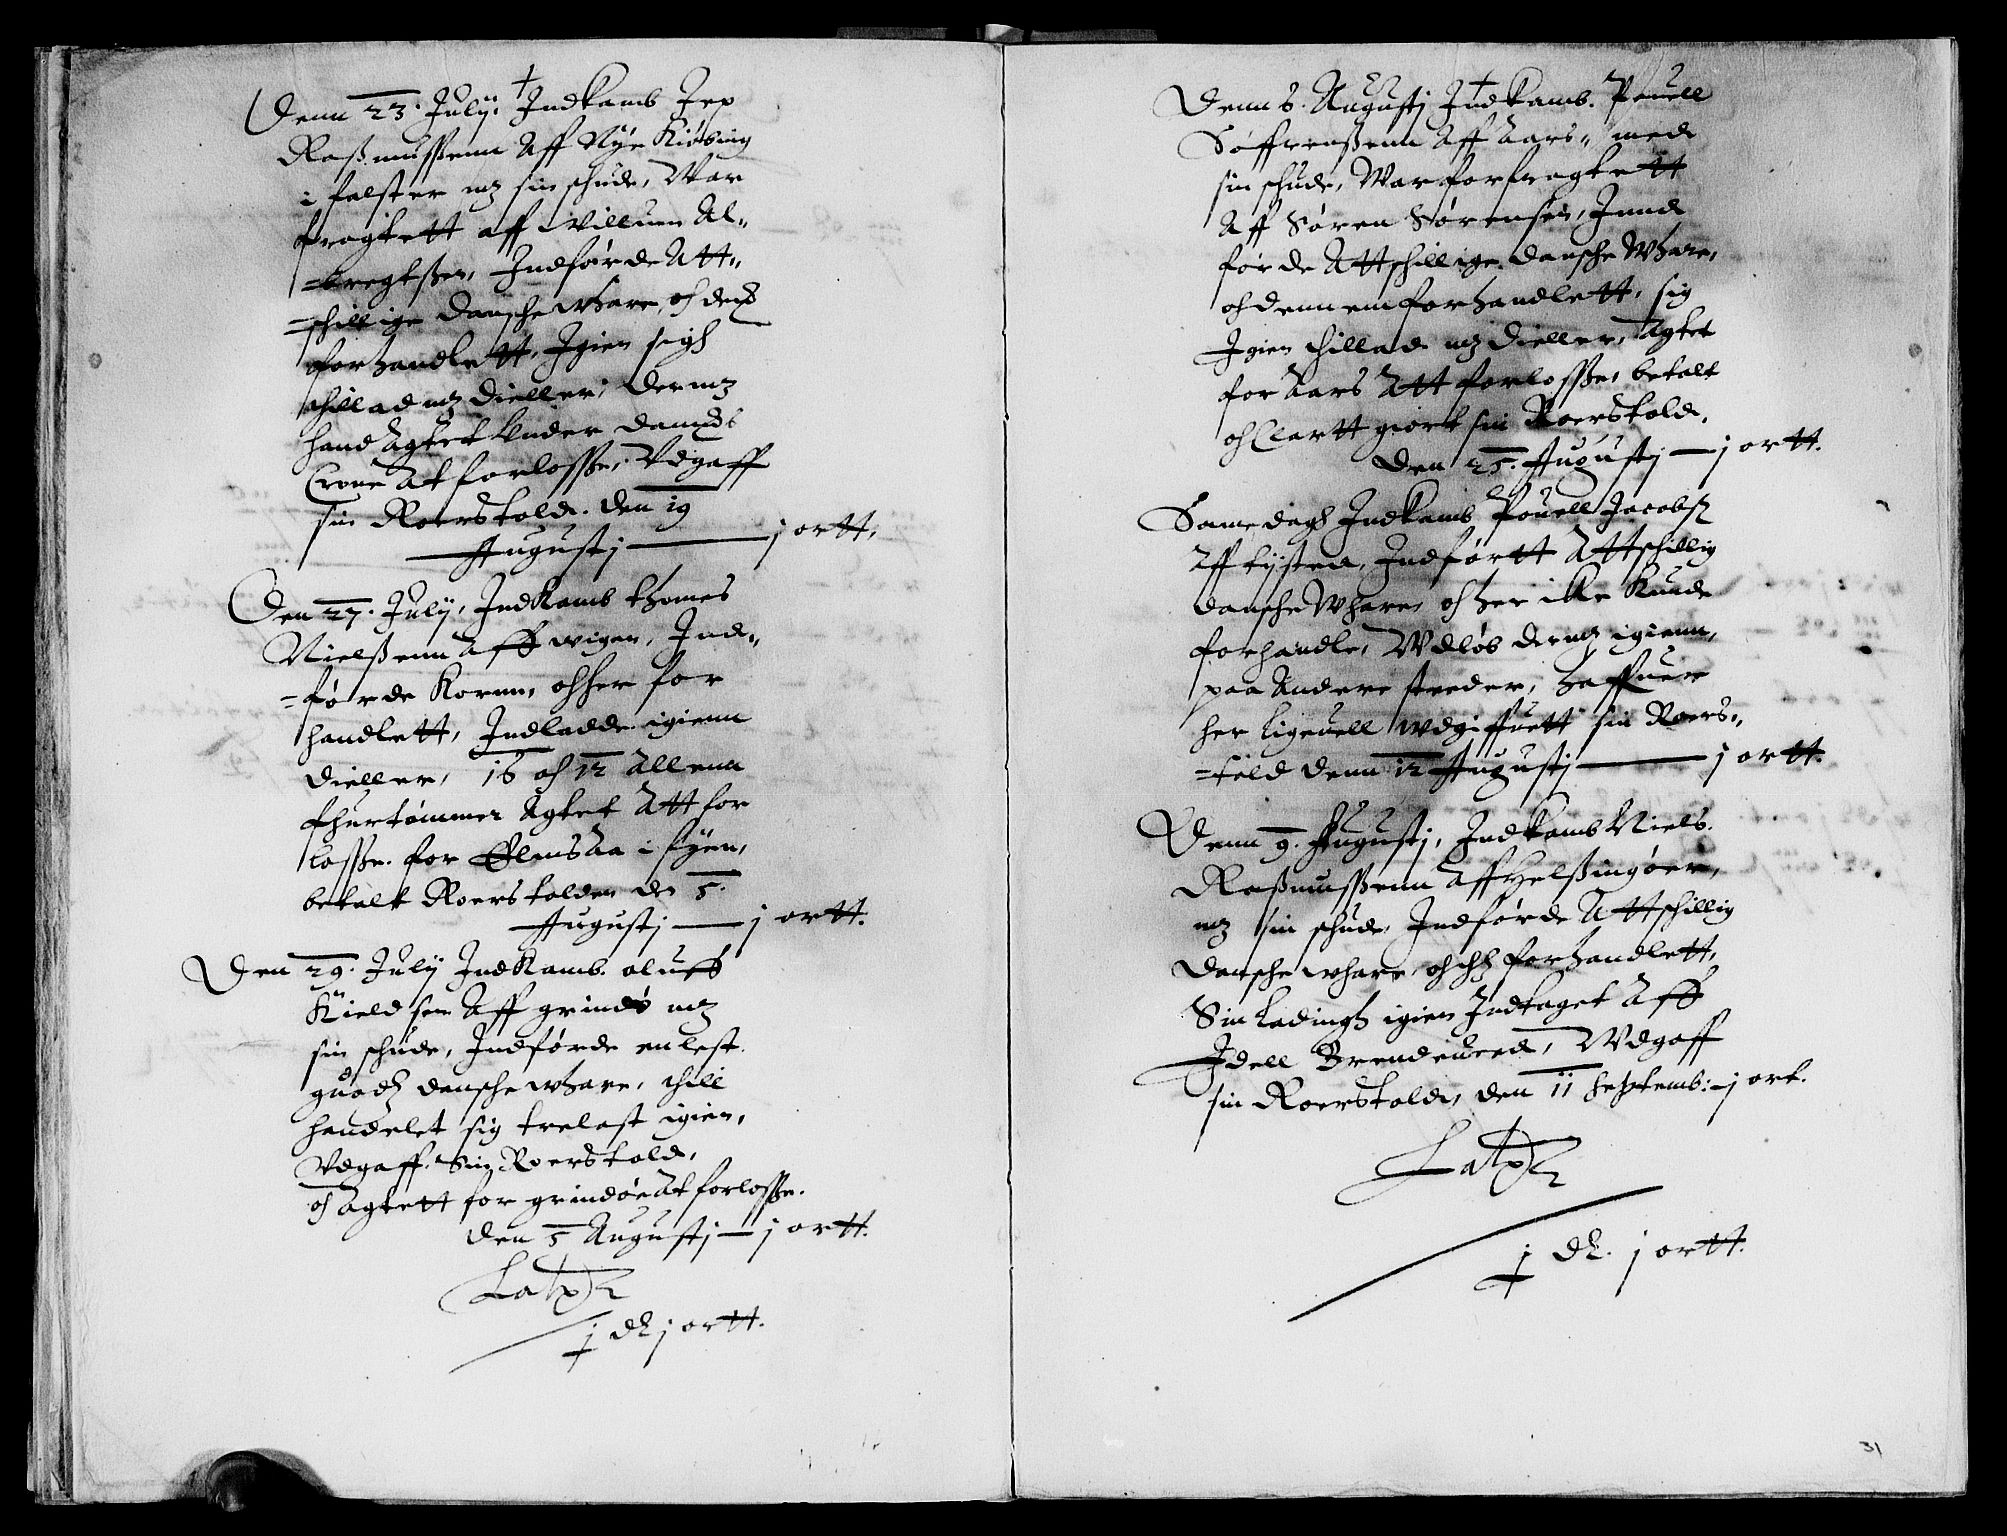 Denn 23. Julij. Indkamb Jep
Rasmussenn Aff Nye Kiøbing
i falster mz sin schude, War
fragtett aff Willum Al-
=bregtsen, Indførde Att-
=schillige dansche whare, oh dend
forhandlett, Igien sigh
chillad mz dieller, dermz
hand Agtet Under damds
Crone At forlosse, Vdgaff
sin Roerstold. den 19
Augustj — j ortt.
Den 27. Julij, Indkamb thomes
Nielsenn Aff wigen, Ind-
=førde Kornn, oh her for
handlett, Indladde igienn
dieller, 16 oh 12 Allenn
fhurtømmer Agtet Att for
losse. for Elmslaa i fyen,
betalt Roerstolden den 5.
Augustj — j ortt.
Den 29. Julij Indkamb. oluff
Kieldsen Aff grindø mz
sin schude, Indførde en lest.
guodh dansche whare, chill
handelet sig trelast igien,
Vdgaff. Sin Roerstold,
oh Agtett for grindøe At forlosse.
den 5 Augustj — j ortt.
Latz
j dl j ortt.
Denn 8. Augustj Indkamb. Pouell
Søffrenssenn Aff Aars,, med
sin schude, War forfragtett
Aff Søren Sørensen, Innd
førde Attschillige dansche Whare,
oh denn em forhandlett, sig
Igien chillad mz dieller, Agtet
for Aars Att forlosse, betalt
oh Clartt giort sin Roerstold,
den 25. Augustj — j ortt.
Same dagh Indkamb Pouell Jacobsz
Aff tysted, Indførtt Attschillig
dansche Whare oh her ikke Kunde
forhandle, Wdløb dermz igienn,
paa Andere steder, haffuer
her ligeuell wdgiffuett sin Roers-
=told denn 12 Augustj — j ortt.
Denn 9. Augustj, Indkamb Niels.
Rasmussenn Aff Helsingøer,
mz sin schude, Indførde Attschillig
dansche whare, oh forhandlett,
Sin ladingh igien Indtaget Aff
Idell Brendeueed, Wdgaff
sin Roerstold, den 11 Septemb: — j ort.
Latz
j dl. j ortt.
31